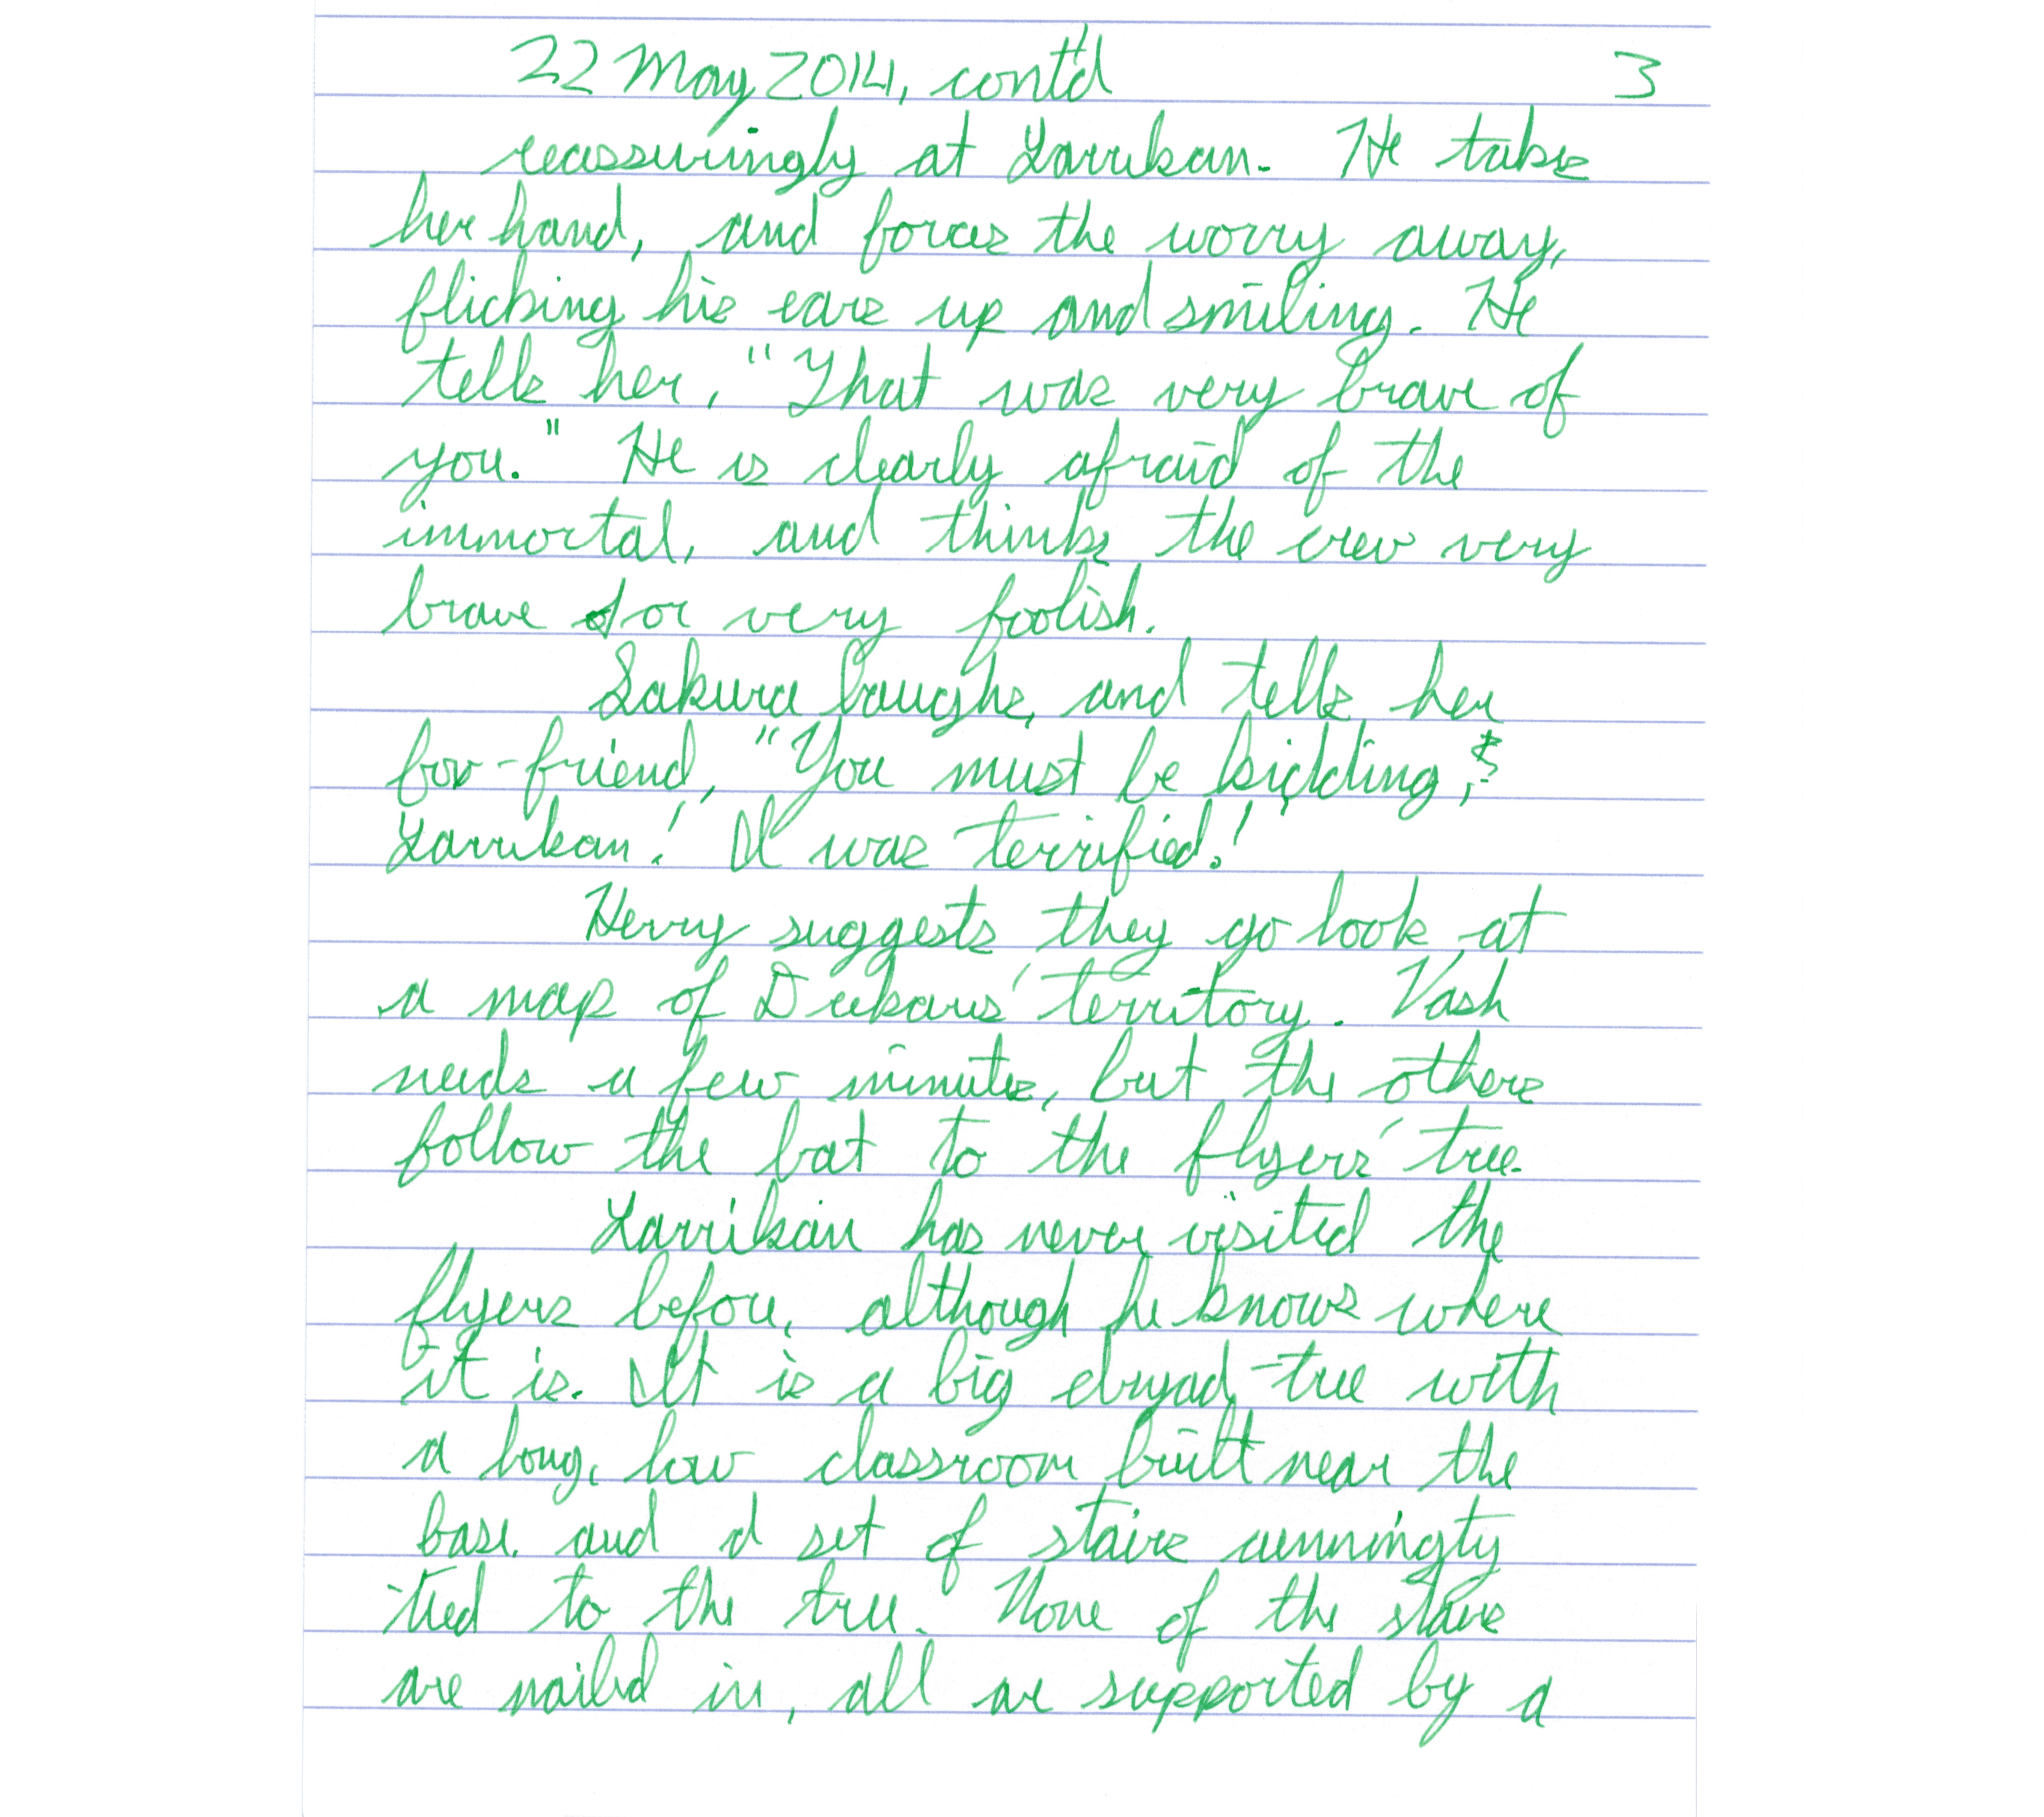 22 May 2014, cont'd 3
reassuringly at Larrikan. He takes
her hand, and forces the worry away,
flicking his ears up and smiling. He
tells her, "That was very brave of
you." He is clearly afraid of the
immortal, and thinks the crew very
brave or very foolish.
Sakura laughs, and tells her
fox-friend, "You must be kidding,
Larrikan! I was terrified!"
Herry suggests they go look at
a map of territory. Vash
needs a few minutes, but the others
follow the bat to the flyers' tree.
Larrikan has never visited the
flyers before, although he knows where
it is. It is a big dryad-tree with
a long, low classroom built near the
base, and a set of stairs cunningly
tied to the tree. None of the stairs
are nailed in, all are supported by a